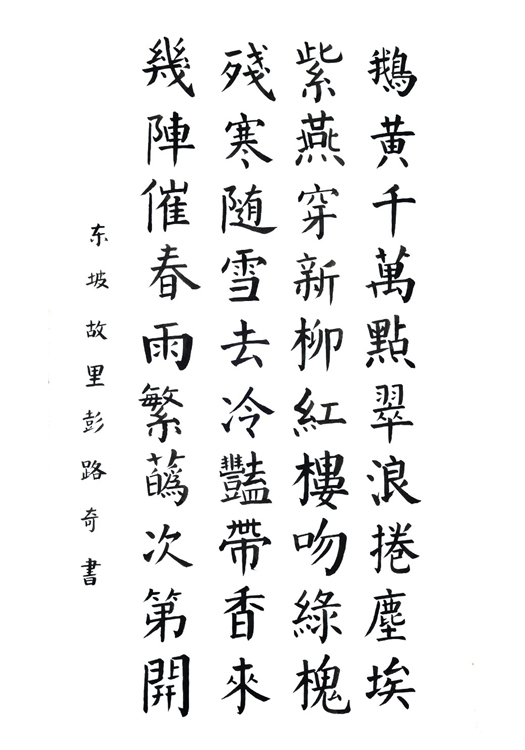 鵝黄千萬點翠浪捲塵埃
紫燕穿新柳紅樓吻綠槐
殘寒随雪去冷豔帶香來
幾陣催春雨繁蘤次第開
东坡故里彭路奇書